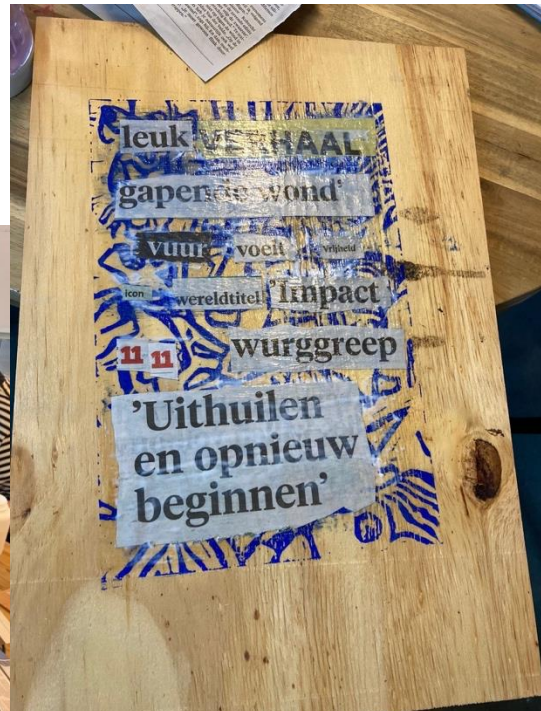 leuk VERHAAL
gapende wond’
vuur voelt vrijheid
icon wereldtitel ’Impact
11 11 wurggreep
’Uithuilen
en opnieuw
beginnen’